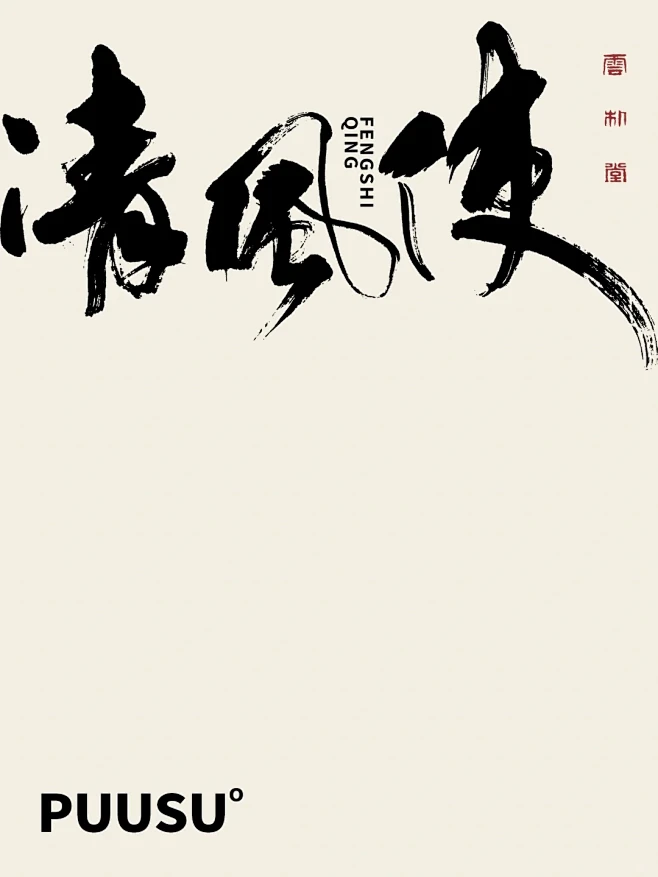 清風使
QING
FENGSHI
雲朴堂
PUUSU°